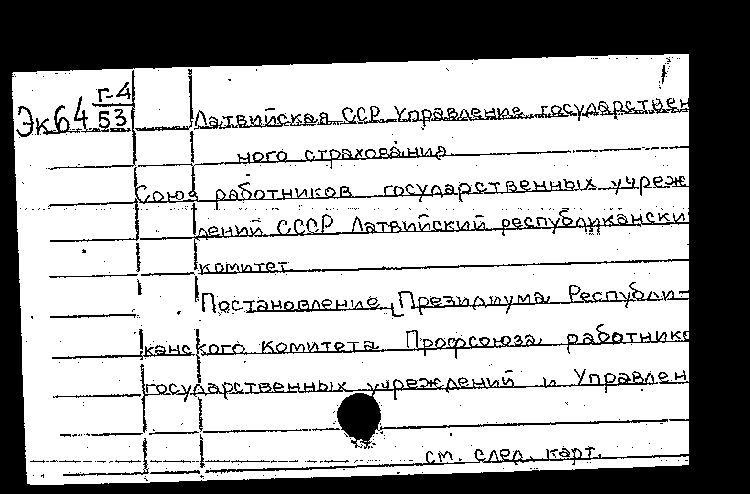 Эк64 г-4/53
Латвийская ССР Управление государствен
ного страхования
Союз работников государственных учреж
дений СССР Латвийский республикански
комитет
Постановление [Президиума Республи-
канского Комитета Профсоюза работнико
государственных учреждений и Управлен
см. след. карт.